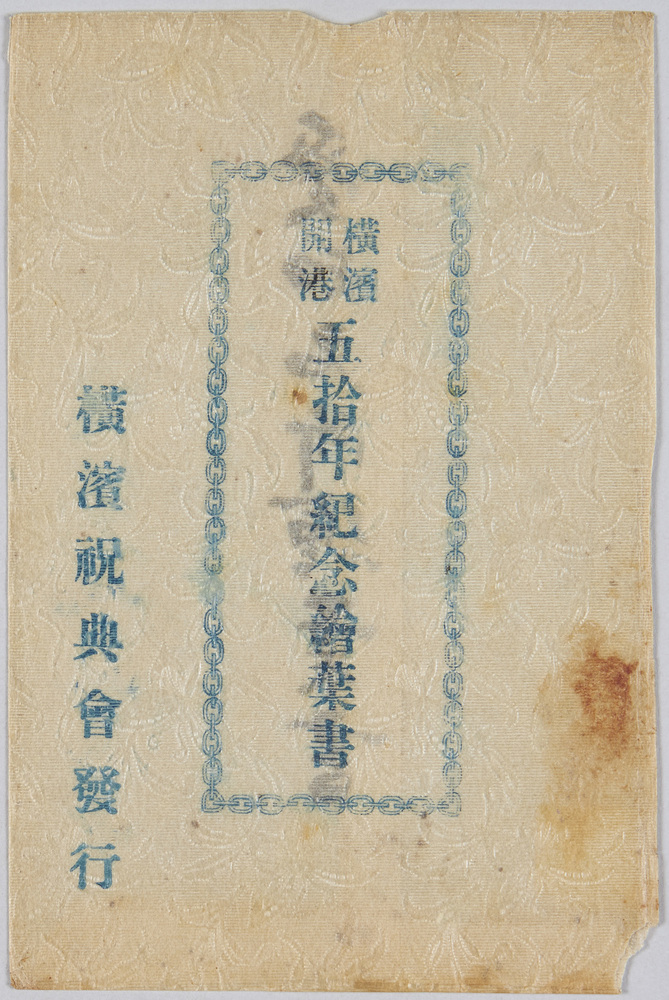 横濱
開港
五拾年紀念繪葉書
横濱祝典會發行